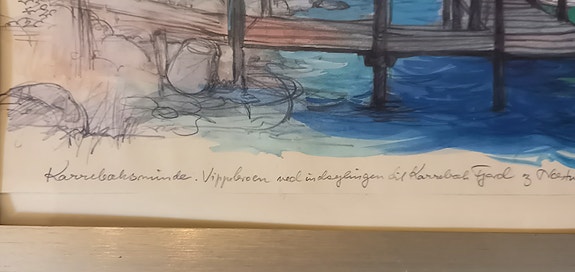 Karrebæksminde. Vippebroen ved indsejlingen til Karrebæk Fjord og Næstv